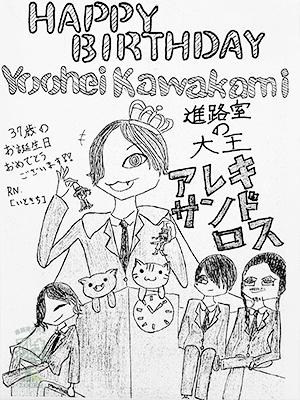 HAPPY
BIRTHDAY
Yoohei Kawakami
37歳の
お誕生日
おめでとう
ございます
RN.
進路室
の
大王
アレキ
サンドロス